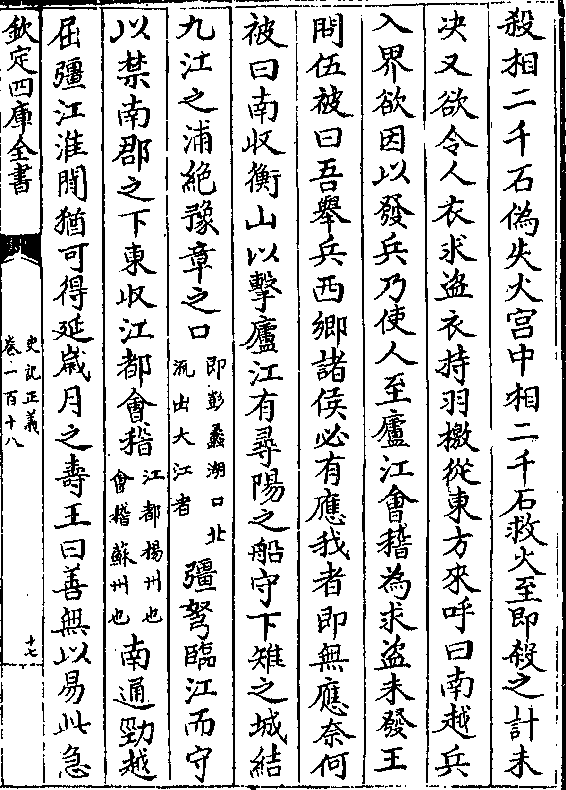 殺相二千石偽失火宫中相二千石救火至即殺之計未
决又欲令人衣求盗衣持羽檄從東方來呼曰南越兵
入界欲因以發兵乃使人至廬江會稽為求盗未發王
問伍被曰吾舉兵西鄉諸侯必有應我者即無應奈何
被曰南收衡山以擊廬江有尋陽之船守下雉之城結
九江之浦絶豫章之口即彭蠡湖口北流出大江者彊弩臨江而守
以禁南郡之下東收江都會稽江都揚州也會稽蘇州也南通勁越
屈彊江淮間猶可得延歲月之壽王曰善無以易此急
欽定四庫全書
史記正義
卷一百十八
十七